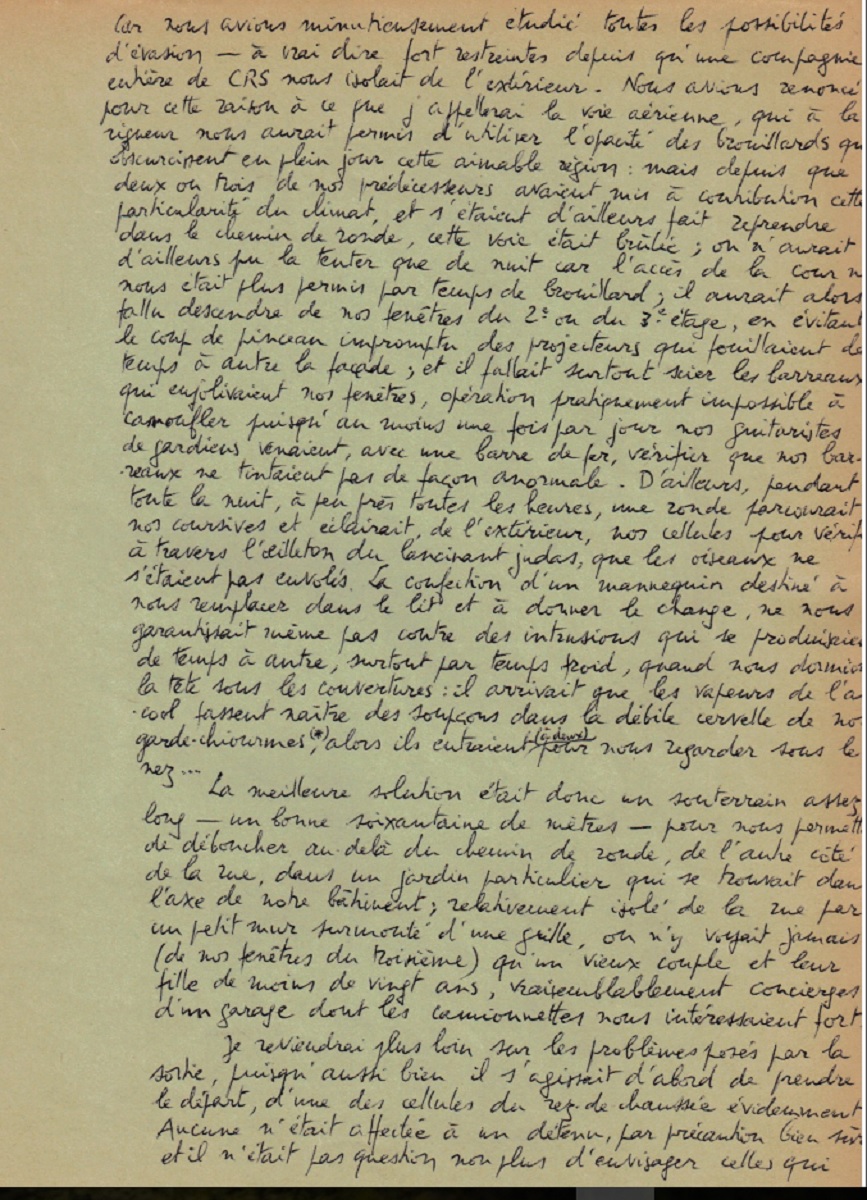 Car nous avions minutieusement étudié toutes les possibilités
d'évasion — à vrai dire fort restreintes depuis qu'une compagnie
entière de CRS nous isolait de l'extérieur. Nous avions renoncé
pour cette raison à ce que j'appellerai la voie aérienne, qui à la
rigueur nous aurait permis d'utiliser l'opacité des brouillards qu
obscurcissent en plein jour cette aimable région : mais depuis que
deux ou trois de nos prédécesseurs avaient mis à contribution cette
particularité du climat, et s'étaient d'ailleurs fait reprendre
dans le chemin de ronde, cette voie était brûlée ; on n'aurait
d'ailleurs pu la tenter que de nuit car l'accès de la cour n
nous était plus permis par temps de brouillard ; il aurait alors
fallu descendre de nos fenêtres du 2e ou du 3e étage, en évitant
le coup de pinceau impromptu des projecteurs qui fouillaient de
temps à autre la façade ; et il fallait surtout scier les barreaux
qui enjolivaient nos fenêtres, opération pratiquement impossible à
camoufler puisqu'au moins une fois par jour nos guitaristes
de gardiens venaient, avec une barre de fer, vérifier que nos bar-
-reaux ne tintaient pas de façon anormale. D'ailleurs, pendant
toute la nuit, à peu près toutes les heures, une ronde parcourait
nos coursives et éclairait, de l'extérieur, nos cellules pour vérif
à travers l'œilleton du lancinant judas, que les oiseaux ne
s'étaient pas envolés. La confection d'un mannequin destiné à
nous remplacer dans le lit et à donner le change, ne nous
garantissait même pas contre des intrusions qui se produisaie
de temps à autre, surtout par temps froid, quand nous dormions
la tête sous les couvertures : il arrivait que les vapeurs de l'a
-cool fassent naître des soupçons dans la débile cervelle de no
garde-chiourmes(*), alors ils entraient (à deux) pour nous regarder sous le
nez...
La meilleure solution était donc un souterrain assez
long — un bonne soixantaine de mètres — pour nous permett
de déboucher au-delà du chemin de ronde, de l'autre côté
de la rue, dans un jardin particulier qui se trouvait dan
l'axe de notre bâtiment ; relativement isolé de la rue par
un petit mur surmonté d'une grille, on n'y voyait jamais
(de nos fenêtres du troisième) qu'un vieux couple et leur
fille de moins de vingt ans, vraisemblablement concierges
d'un garage dont les camionnettes nous intéressaient fort
Je reviendrai plus loin sur les problèmes posés par la
sortie, puisqu'aussi bien il s'agissait d'abord de prendre
le départ, d'une des cellules du rez-de-chaussée évidemment
Aucune n'était affectée à un détenu, par précaution bien sûr
et il n'était pas question non plus d'envisager celles qui